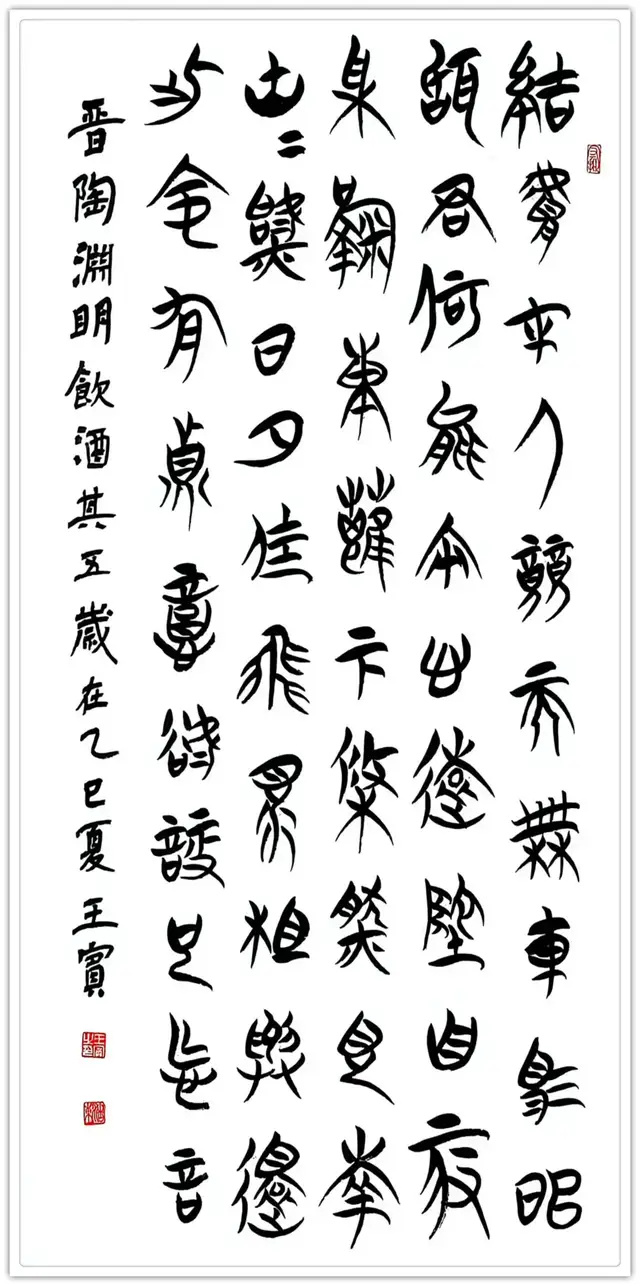 結廬在人境而無車馬喧
問君何能尔心遠地自偏
采菊東籬下悠然見南
山=氣日夕佳飛鳥相與還
此中有真意欲辯已忘言
晉陶淵明飲酒其五歲在乙巳夏王賓